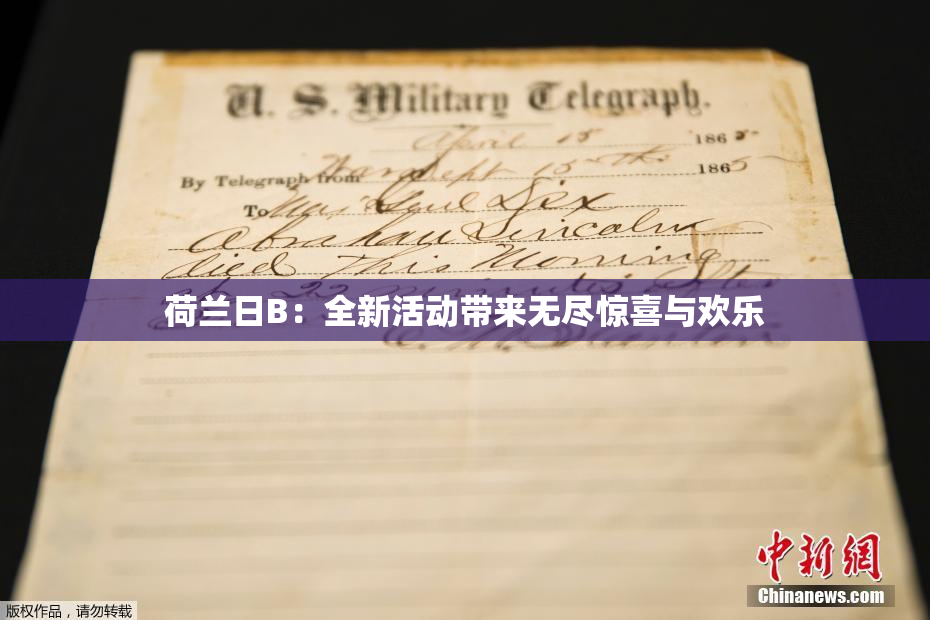 U. S. Military Telegraph.
April 15 1865
By Telegraph from War Dept 15th 1865
To Maj Genl Dix
Abraham Lincoln
died This Morning
at 22 minutes after
荷兰日B：全新活动带来无尽惊喜与欢乐
E. M. Stanton
中新网
Chinanews.com
版权作品，请勿转载